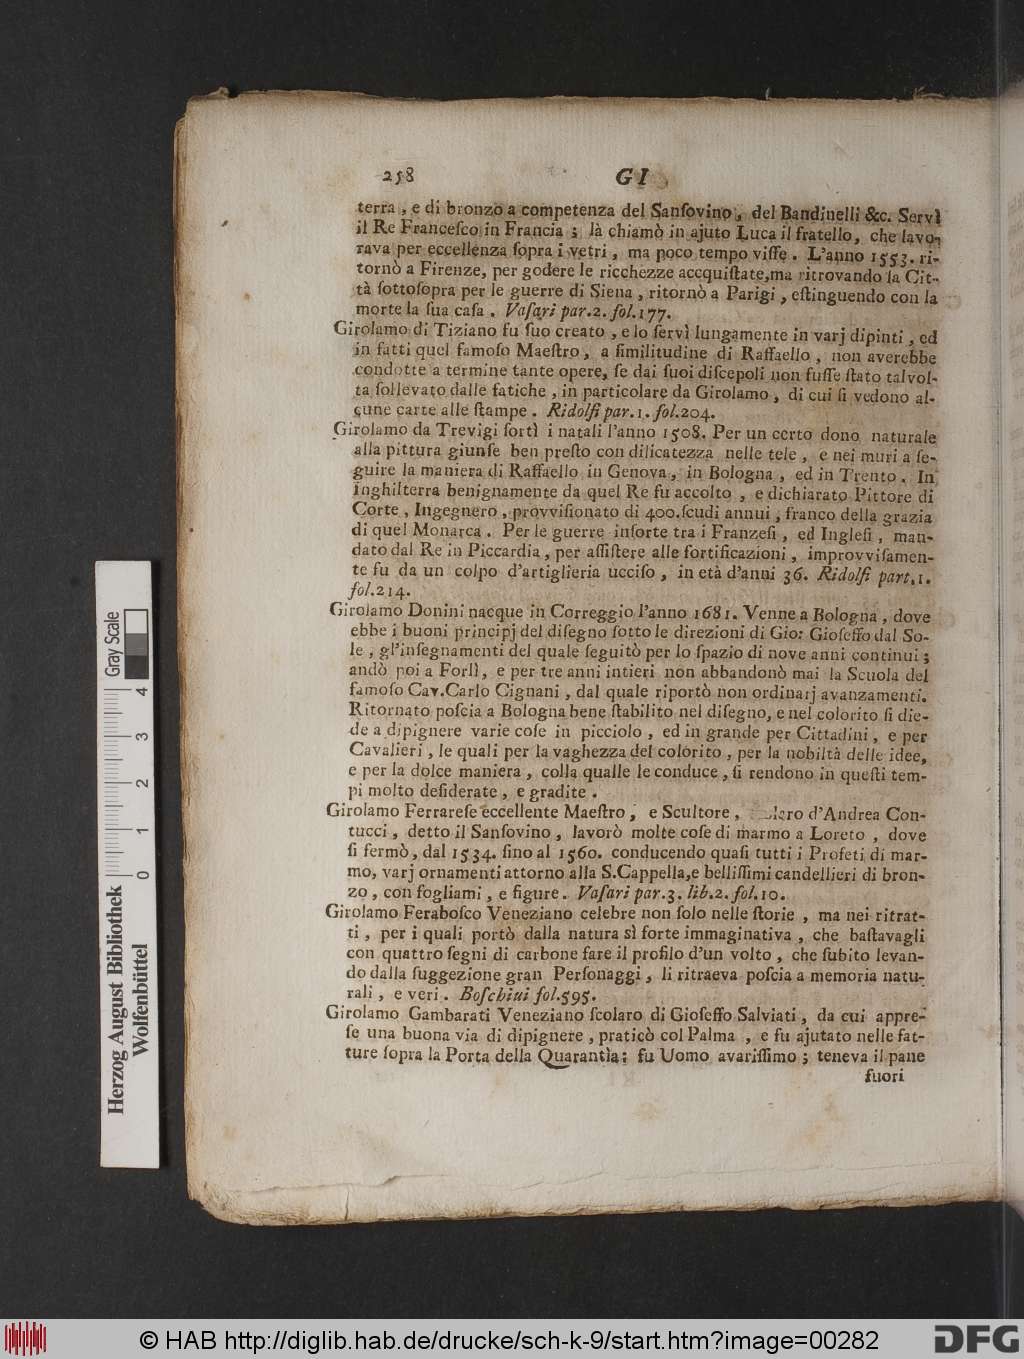 258 GI
terra , e di bronzo a competenza del Sanſovino , del Bandinelli &c. Servì
il Re Franceſco in Francia ; là chiamò in ajuto Luca il fratello, che lavo-
rava per eccellenza ſopra i vetri , ma poco tempo viſſe . L'anno 1553. ri-
tornò a Firenze, per godere le ricchezze accquiſtate,ma ritrovando la Cit-
tà ſottoſopra per le guerre di Siena , ritornò a Parigi , eſtinguendo con la
morte la ſua caſa . Vaſari par.2. fol.177.
Girolamo di Tiziano fu ſuo creato , e lo ſervì lungamente in varj dipinti , ed
in fatti quel famoſo Maeſtro , a ſimilitudine di Raffaello , non averebbe
condotte a termine tante opere, ſe dai ſuoi diſcepoli non fuſſe ſtato talvol-
ta ſollevato dalle fatiche , in particolare da Girolamo , di cui ſi vedono al-
cune carte alle ſtampe . Ridolfi par.1. fol.204.
Girolamo da Trevigi ſortì i natali l'anno 1508. Per un certo dono naturale
alla pittura giunſe ben preſto con dilicatezza nelle tele , e nei muri a ſe-
guire la maniera di Raffaello in Genova , in Bologna , ed in Trento . In
Inghilterra benignamente da quel Re fu accolto , e dichiarato Pittore di
Corte , Ingegnero , provviſionato di 400.ſcudi annui , franco della grazia
di quel Monarca . Per le guerre inſorte tra i Franzeſi , ed Ingleſi , man-
dato dal Re in Piccardia , per aſſiſtere alle fortificazioni , improvviſamen-
te fu da un colpo d'artiglieria ucciſo , in età d'anni 36. Ridolfi part.1.
fol.214.
Girolamo Donini nacque in Correggio l'anno 1681. Venne a Bologna , dove
ebbe i buoni principj del diſegno ſotto le direzioni di Gio: Gioſeffo dal So-
le , gl'inſegnamenti del quale ſeguitò per lo ſpazio di nove anni continui ;
andò poi a Forlì, e per tre anni intieri non abbandonò mai la Scuola del
famoſo Cav.Carlo Cignani , dal quale riportò non ordinarj avanzamenti.
Ritornato poſcia a Bologna bene ſtabilito nel diſegno, e nel colorito ſi die-
de a dipignere varie coſe in picciolo , ed in grande per Cittadini , e per
Cavalieri , le quali per la vaghezza del colorito , per la nobiltà delle idee,
e per la dolce maniera , colla qualle le conduce , ſi rendono in queſti tem-
pi molto deſiderate , e gradite .
Girolamo Ferrareſe eccellente Maeſtro , e Scultore , d'Andrea Con-
tucci , detto il Sanſovino , lavorò molte coſe di marmo a Loreto , dove
ſi fermò, dal 1534. ſino al 1560. conducendo quaſi tutti i Profeti di mar-
mo, varj ornamenti attorno alla S.Cappella,e belliſſimi candellieri di bron-
zo , con fogliami , e figure . Vaſari par.3. lib.2. fol.10.
Girolamo Feraboſco Veneziano celebre non ſolo nelle ſtorie , ma nei ritrat-
ti , per i quali portò dalla natura sì forte immaginativa , che baſtavagli
con quattro ſegni di carbone fare il profilo d'un volto , che ſubito levan-
do dalla ſuggezione gran Perſonaggi , li ritraeva poſcia a memoria natu-
rali , e veri . Boſchini fol.595.
Girolamo Gambarati Veneziano ſcolaro di Gioſeffo Salviati , da cui appre-
ſe una buona via di dipignere , praticò col Palma , e fu ajutato nelle fat-
ture ſopra la Porta della Quarantìa; fu Uomo avariſſimo ; teneva il pane
fuori
Herzog August Bibliothek
Wolfenbüttel
Gray Scale
0 1 2 3 4
© HAB http://diglib.hab.de/drucke/sch-k-9/start.htm?image=00282
DFG